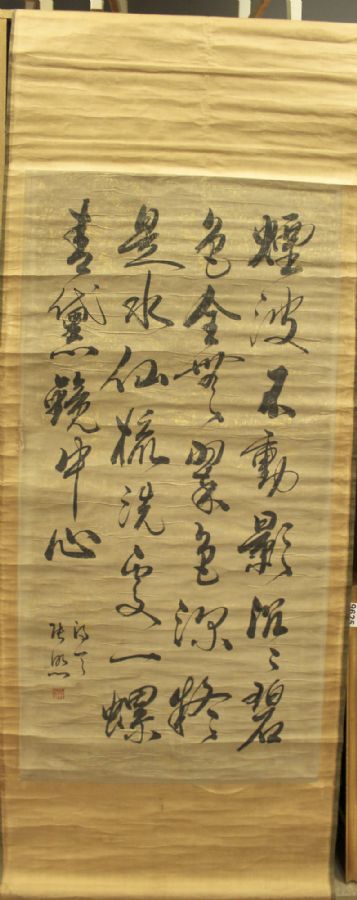 煙波不動影沉〻碧
色全無翠色深疑
是水仙梳洗處一螺
青黛鏡中心
9625